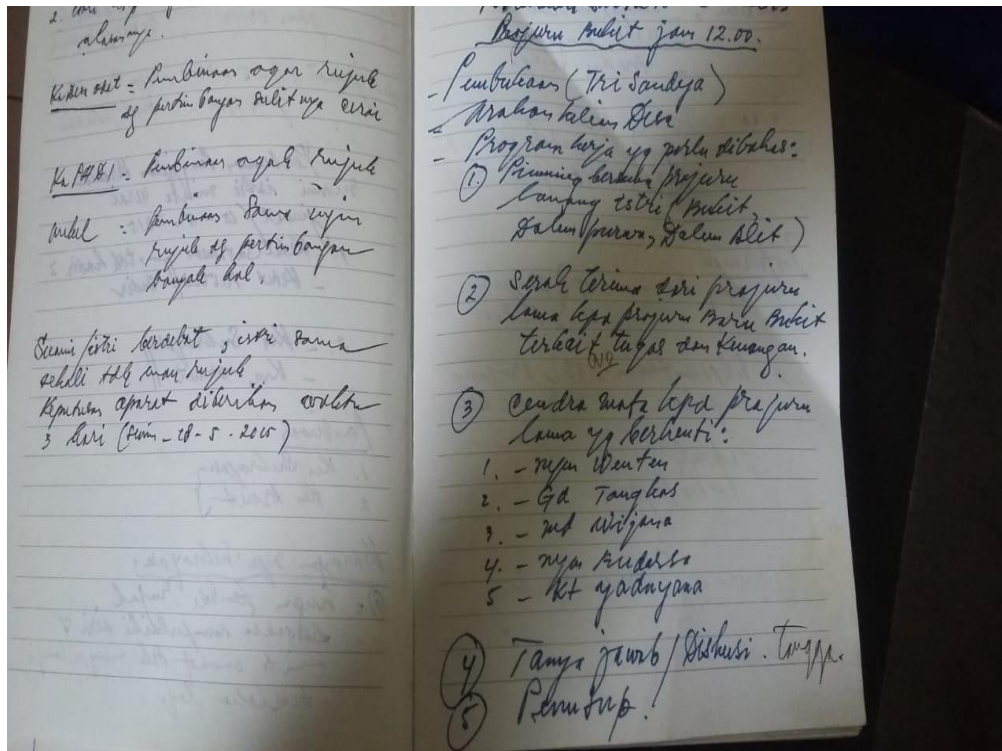 2. dari
alasannya.
Ka Den adat = Pembinaan agar rujuk
dg pertimbangan sulitnya cerai
Ka PHDI = Pembinaan agak rujuk
: Pembinaan sama ingin
rujuk dg pertimbangan
banyak hal.
Suami/istri berdebat, istri sama
sekali tdk mau rujuk
Keputusan aparat diberikan waktu
3 hari (Senin - 18 - 5 - 2015)
Prajuru Bukit jam 12.00.
- Pembukaan (Tri Sandya)
- Arahan Kelian Desa
- Program kerja yg perlu dibahas:
1. bersama prajuru
lanang istri (Bukit,
Dalem purwa, Dalem Alit)
2 Serah terima dari prajuru
lama kpd prajuru Baru Bukit
terkait tugas dan Keuangan.
3 Cendra mata kpd prajuru
lama yg berhenti:
1. - nym Wenten
2. - Gd Tangkas
3. - Mt Wijana
4. - nym Sudarsa
5 - Kt Yadnyana
4 Tanya jawab / Diskusi.
5 Penutup.